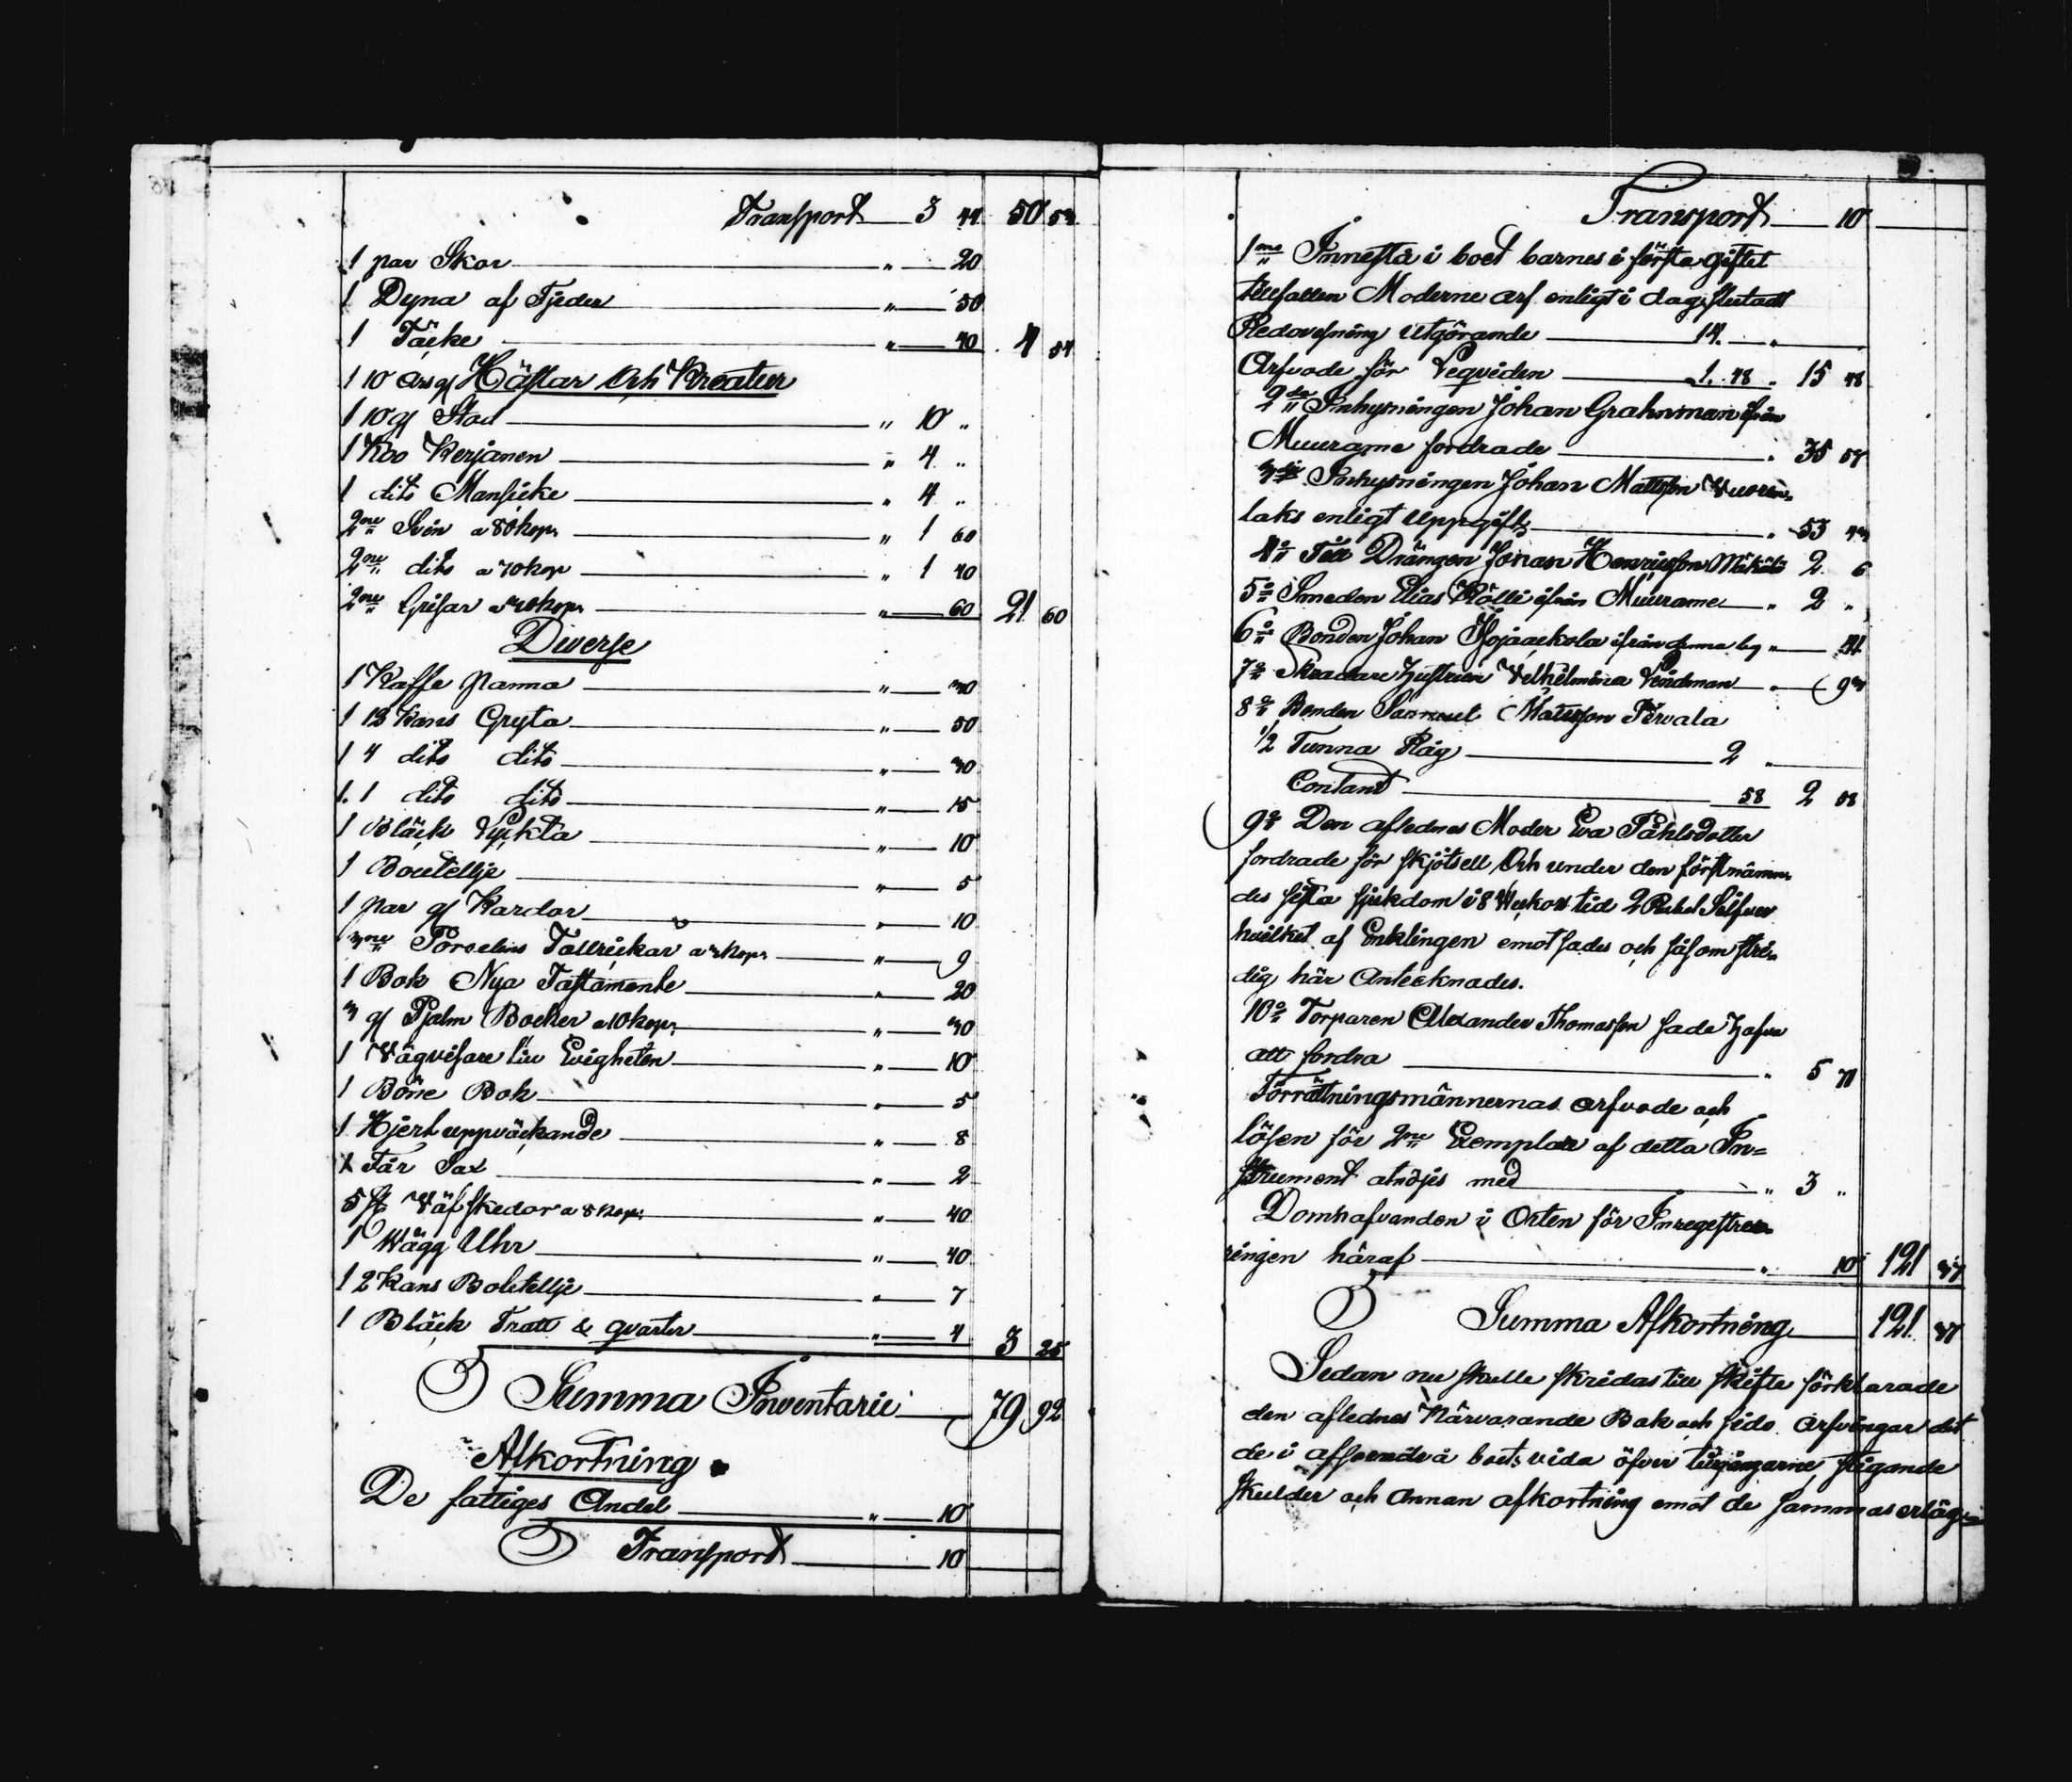 Transport 3 44 50 53
1 par Skor " 20
1 Dyna af Fjeder " 50
1 Täcke " 40 4 54
1 10 års gl Hästar Och Kreatur
1 10 gl Stod " 10 "
1 Koo Kerjänen " 4 "
1 dito Mansicke " 4 "
2ne Svin a 80 kop: " 1 60
2ne dito a 70 kop " 1 40
2ne Grisar a 30 kop: " 60 21 60
Diverse
1 Kaffe Panna " 30
1 13 kans Gryta " 50
1 4 dito dito " 30
1. 1 dito dito " 15
1 Bläck Lyckta " 10
1 Boutellje " 5
1 par gl Kardor " 10
3ne Porselins Tallrickar a 3 kop: " 9
1 Bok Nya Tästamente " 20
3 gl Psalm Böcker a 10 kop: " 30
1 Vägvisare till Evigheten " 10
1 Böne Bok " 5
1 Hjert uppväckande " 8
1 Får Sax " 2
5 st Väfskedar a 8 kop: " 40
1 Wägg Uhr " 40
1 2 Kans Boletellje " 7
1 Bläck Tratt & qvarter " 4 3 25
Summa Inventarii 79 92
Afkortning
De fattiges Andel " 10
Transport 10
Transport 10
1mo Innestå i boet barnes i första giftet
tillfallen Moderne arf enligt i dag slutadt
Redovisning utgörande 14. "
Arfvode för Leqviden 1. 48 " 15 48
2do Inhysningen Johan Grahnman ifrån
Muurame fordrade " 35 57
3tio Inhysningen Johan Mattsson Vuoren-
laks enligt uppgift " 53 43
4o Till Drängen Johan Henriksson Mikkola 2 6
5o Smeden Elias Rölli ifrån Muurame " 2 "
6o Bonden Johan Isojaakola ifrån denna by "
7o Skradare hustrun Vilhelmina Lindman " 93
8o Bonden Samuel Mattsson Pirvala
1/2 Tunna Råg 2 "
Contant 58 2 58
9o Den aflednes Moder Eva Påhlsdotter
fordrade för skjötsell Och under den förstnämn-
des sista sjukdom i 8 Weckors tid 2 Rubel Silfver
hvilket af Enklingen emotsades och såsom stri-
dig här Antecknades.
10o Torparen Alexander Thomasson sade hafva
att fordra " 5 71
Förrättningsmännernas arfvode och
lösen för 2ne Exemplar af detta In-
strument atnöjes med " 3 "
Domhafvanden i Orten för Inregistre-
ringen häraf " 10 121 37
Summa Afkortning 121 37
Sedan nu skulle skridas till skifte förklarade
den aflednes Närvarande Bak och sido Arfvingar det
de i afseende å boets vida öfver tillgångarne stigande
skulder och annan afkortning emot de sammas erläg-